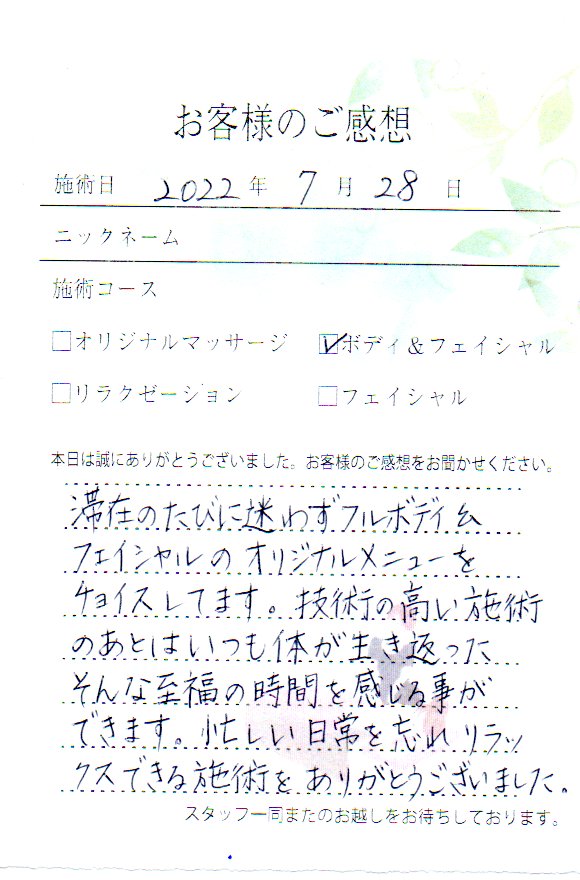 お客様のご感想
施術日 2022 年 7 月 28 日
ニックネーム
施術コース
オリジナルマッサージ ボディ&フェイシャル
リラクゼーション フェイシャル
本日は誠にありがとうございました。お客様のご感想をお聞かせください。
滞在のたびに迷わずフルボディ&
フェイシャルのオリジナルメニューを
チョイスしてます。技術の高い施術
のあとはいつも体が生き返った
そんな至福の時間を感じる事が
できます。忙しい日常を忘れリラッ
クスできる施術をありがとうございました。
スタッフ一同またのお越しをお待ちしております。